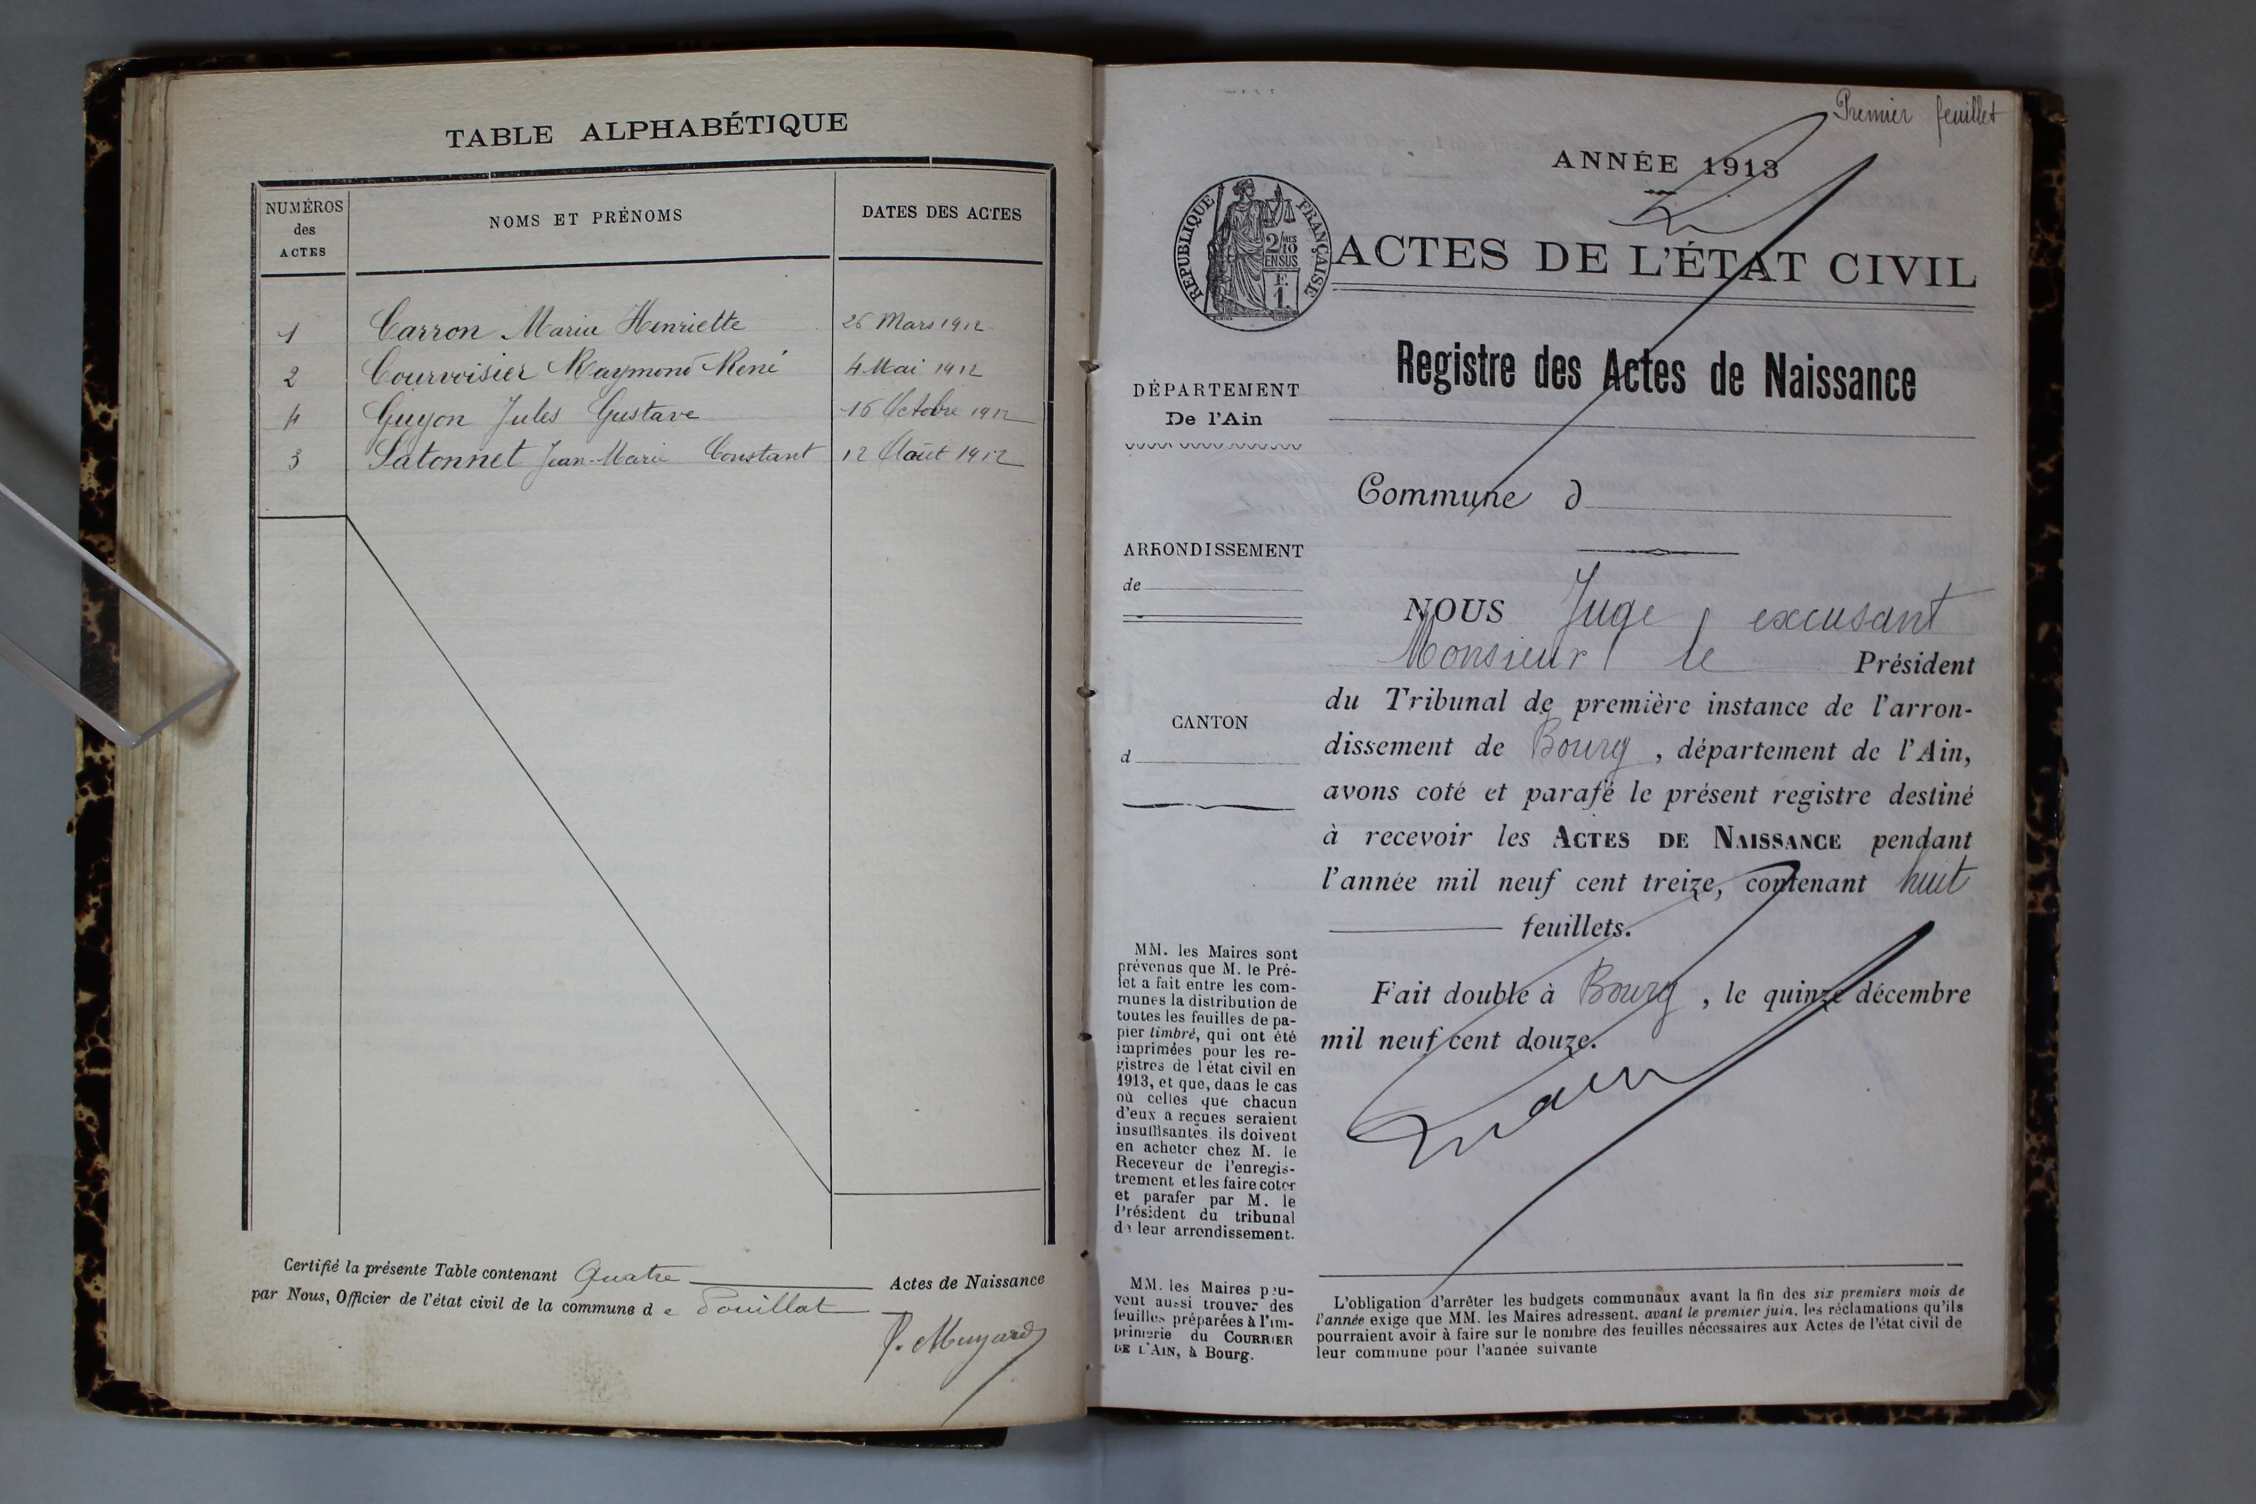 TABLE ALPHABÉTIQUE
NUMÉROS
des
ACTES
NOMS ET PRÉNOMS
DATES DES ACTES
1 Carron Maria Henriette 26 Mars 1912
2 Courvoisier Raymond René 4 Mai 1912
4 Guyon Jules Gustave 16 Octobre 1912
3 Satonnet Jean-Marie Constant 12 Août 1912
Certifié la présente Table contenant Quatre Actes de Naissance
par Nous, Officier de l'état civil de la commune de Pouillat
Premier feuillet
ANNÉE 1913
RÉPUBLIQUE FRANÇAISE
2/10
EN SUS
F.
1.
ACTES DE L'ÉTAT CIVIL
Registre des Actes de Naissance
DÉPARTEMENT
De l'Ain
Commune d
ARRONDISSEMENT
de
CANTON
d
NOUS Juge, excusant
Monsieur le Président
du Tribunal de première instance de l'arron-
dissement de Bourg, département de l'Ain,
avons coté et parafé le présent registre destiné
à recevoir les ACTES DE NAISSANCE pendant
l'année mil neuf cent treize, contenant huit
feuillets.
Fait double à Bourg, le quinze décembre
mil neuf cent douze.
MM. les Maires sont
prévenus que M. le Pré-
fet a fait entre les com-
munes la distribution de
toutes les feuilles de pa-
pier timbré, qui ont été
imprimées pour les re-
gistres de l'état civil en
1913, et que, dans le cas
où celles que chacun
d'eux a reçues seraient
insuffisantes, ils doivent
en acheter chez M. le
Receveur de l'enregis-
trement et les faire coter
et parafer par M. le
Président du tribunal
de leur arrondissement.
MM. les Maires peu-
vent aussi trouver des
feuilles préparées à l'im-
primerie du COURRIER
DE L'AIN, à Bourg.
L'obligation d'arrêter les budgets communaux avant la fin des six premiers mois de
l'année exige que MM. les Maires adressent, avant le premier juin, les réclamations qu'ils
pourraient avoir à faire sur le nombre des feuilles nécessaires aux Actes de l'état civil de
leur commune pour l'année suivante